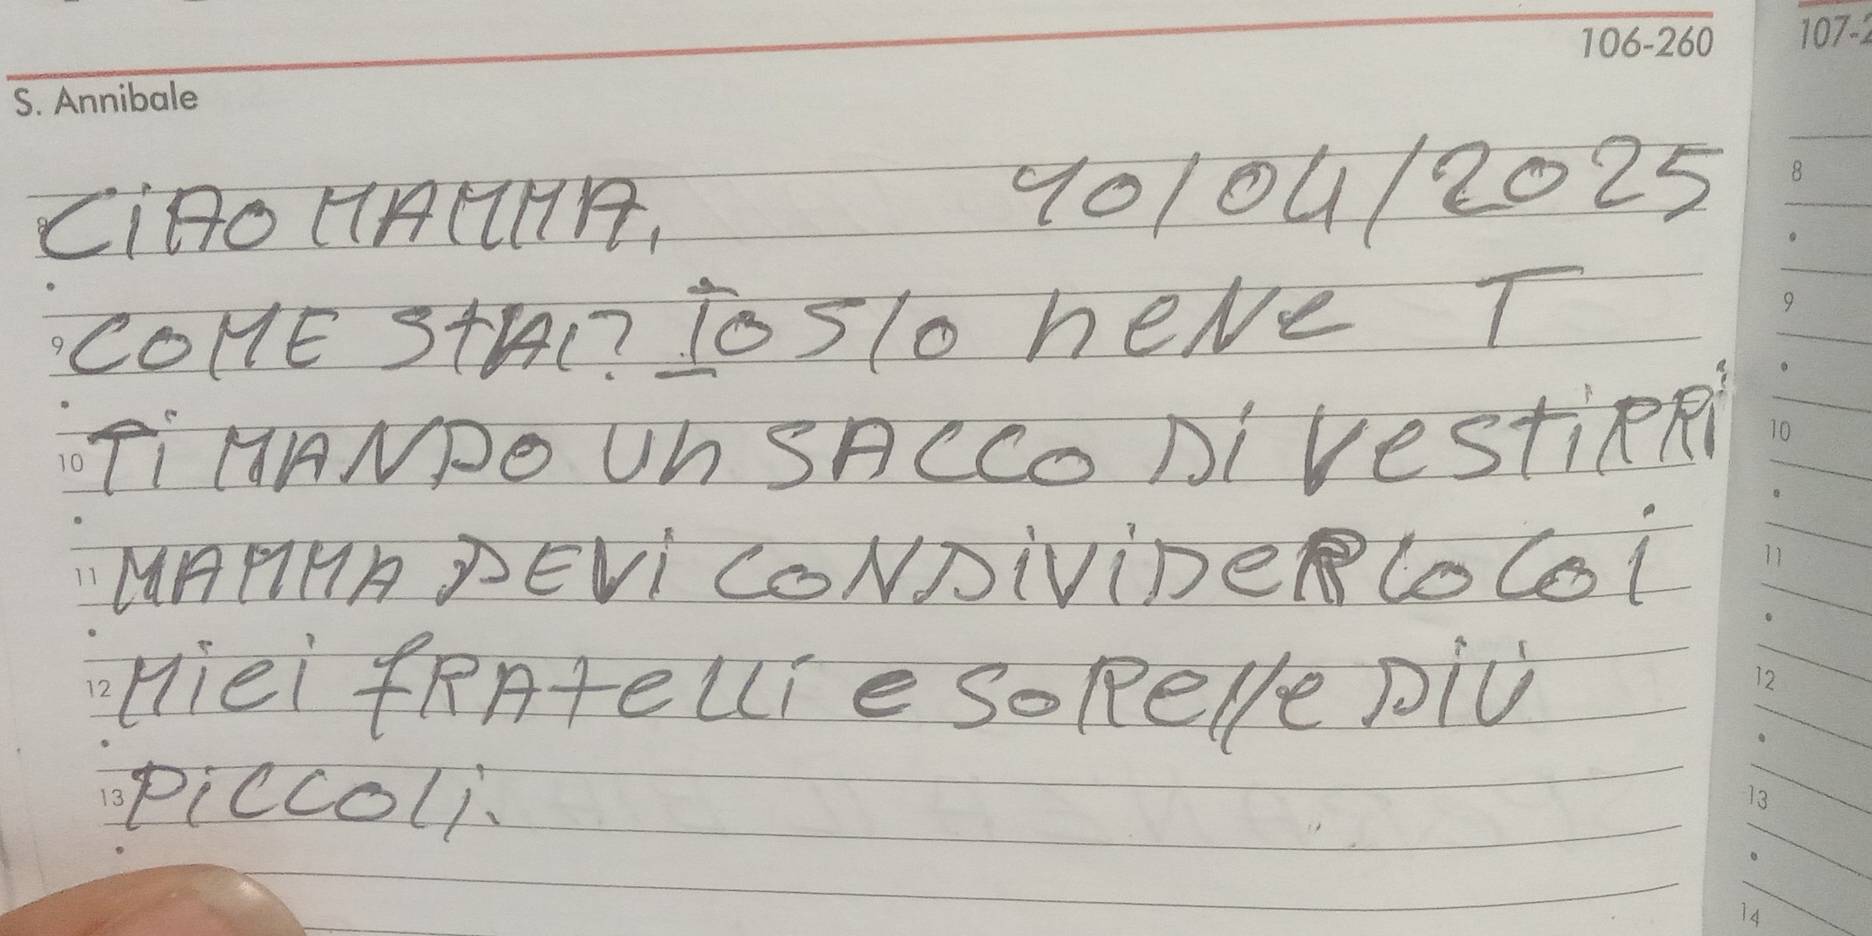 106-260 107-2
S. Annibale
CiAO MAMMA, 10/04/2025
COME StAi? Io Slo heNe T
Ti MANDO Un SACCO Di VestiRRi
MAMMA DEVi CONDiViDeRlo Coi
Miei fRAtelli e SoRelle Diù
PiCCOli.
8
9
10
11
12
13
14
9
10
11
12
13